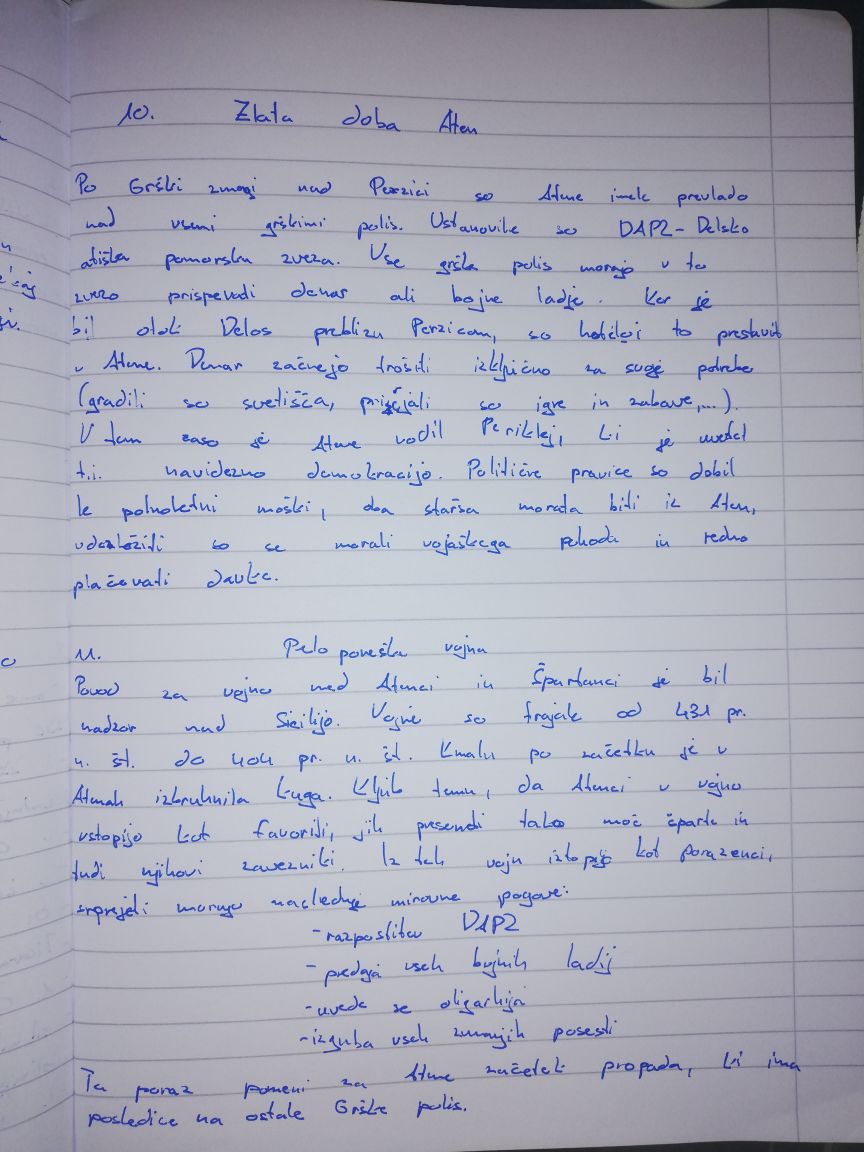 10. Zlata doba Aten
Po Grški zmagi nad Perzici so Atene imele prevlado
nad vsemi grškimi polis. Ustanovile so DAPZ - Delsko
atiška pomorska zveza. Vse grške polis morajo v to
zvezo prispevati denar ali bojne ladje. Ker je
bil otok Delos preblizu Perzicam, so hoteli to prestavit
v Atene. Denar začnejo trošiti izključno za svoje potrebe
(gradili so svetišča, prirejali so igre in zabave,...).
V tem času je Atene vodil Periklej, ki je uvedel
t.i. navidezno demokracijo. Politične pravice so dobil
le polnoletni moški, oba starša morata biti iz Aten,
udeležiti so se morali vojaškega pohoda in redno
plačevati davke.
11. Peloponeška vojna
Povod za vojno med Atenci in Špartanci je bil
nadzor nad Sicilijo. Vojne so trajale od 431 pr.
n. št. do 404 pr. n. št. Kmalu po začetku je v
Atenah izbruhnila kuga. Kljub temu, da Atenci v vojno
vstopijo kot favoriti, jih preseneti tako moč Šparte in
tudi njihovi zavezniki. Iz teh vojn iztopijo kot poraženci,
sprejeti morajo naslednje mirovne pogoje:
- razpustitev DAPZ
- predaja vseh bojnih ladij
- uvede se oligarhija
- izguba vseh zunanjih posesti
Ta poraz pomeni za Atene začetek propada, ki ima
posledice na ostale Grške polis.